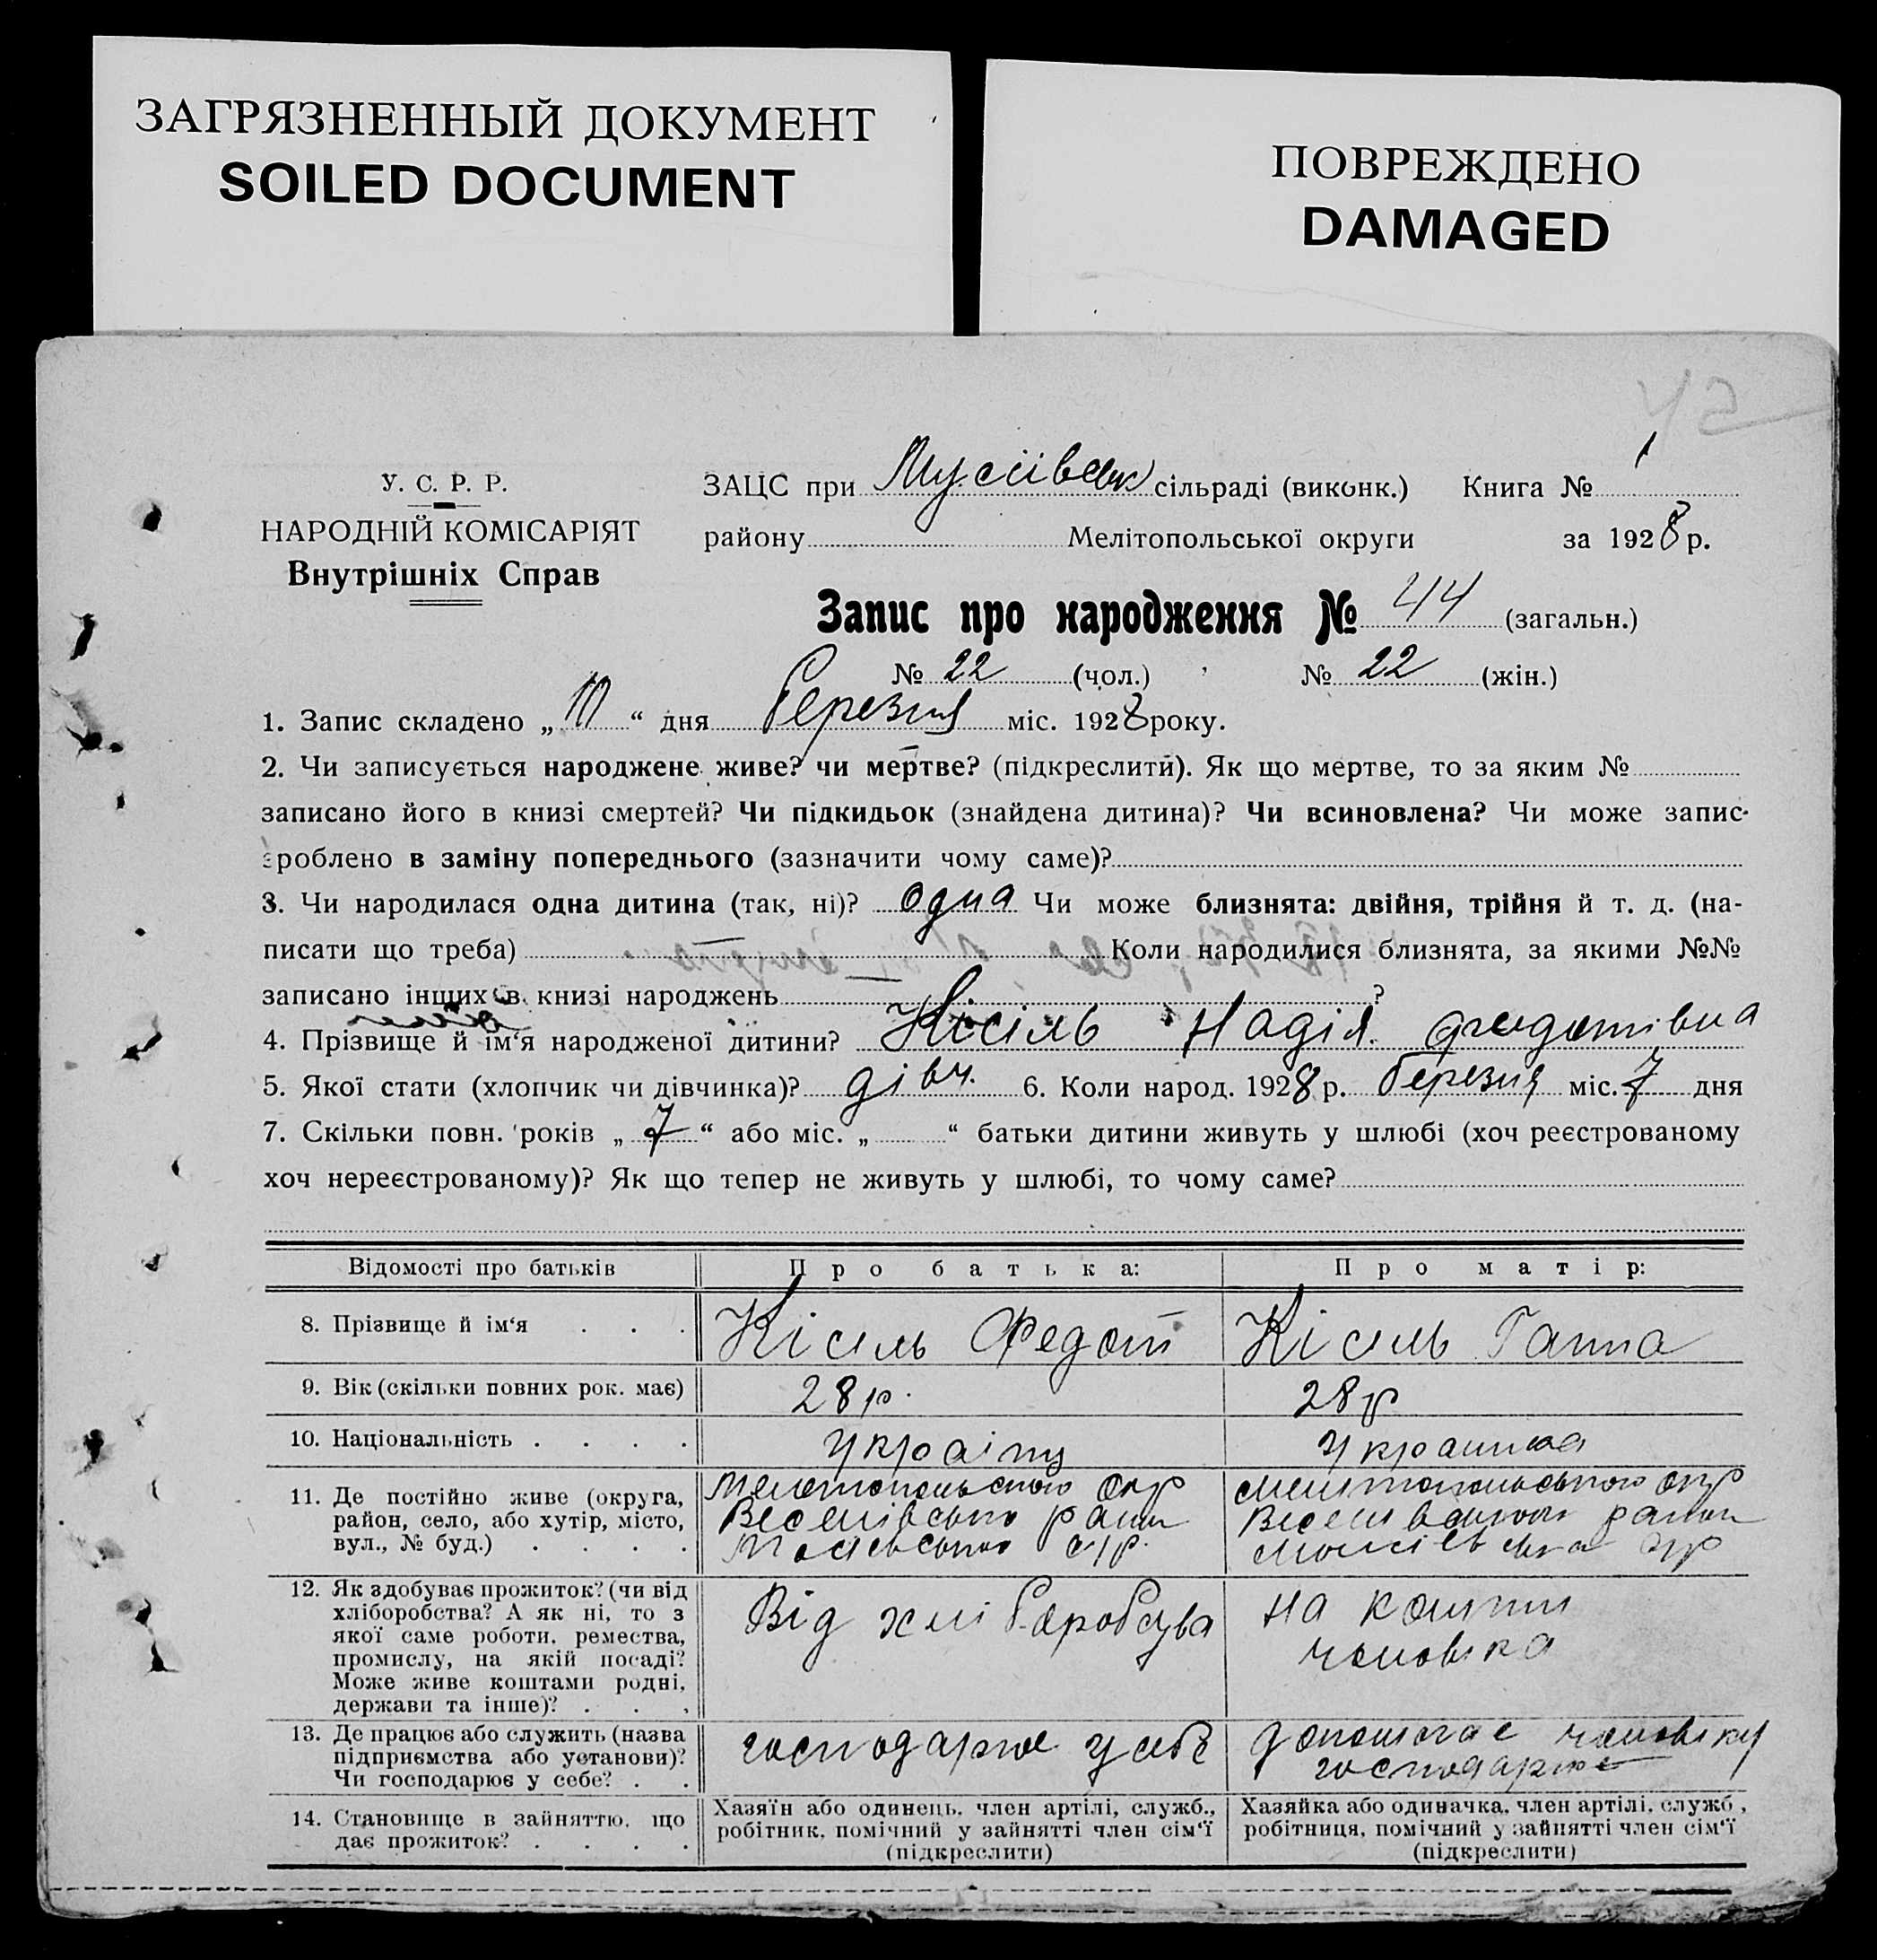 ЗАГРЯЗНЕННЫЙ ДОКУМЕНТ
SOILED DOCUMENT
ПОВРЕЖДЕНО
DAMAGED
42
У. С. Р. Р.
НАРОДНІЙ КОМІСАРІЯТ
Внутрішніх Справ
ЗАЦС при Мусіївськ сільраді (виконк.) Книга № 1
району Мелітопольської округи за 1928 р.
Запис про народження № 44 (загальн.)
№ 22 (чол.) № 22 (жін.)
1. Запис складено „10“ дня березня міс. 1928 року.
2. Чи записується народжене живе? чи мертве? (підкреслити). Як що мертве, то за яким №
записано його в книзі смертей? Чи підкидьок (знайдена дитина)? Чи всиновлена? Чи може запис-
зроблено в заміну попереднього (зазначити чому саме)?
3. Чи народилася одна дитина (так, ні)? одна Чи може близнята: двійня, трійня й т. д. (на-
писати що треба) Коли народилися близнята, за якими №№
записано інших в книзі народжень ?
4. Прізвище й ім‘я народженої дитини? Кісіль Надія Федотівна
5. Якої стати (хлопчик чи дівчинка)? дівч. 6. Коли народ. 1928 р. березня міс. 7 дня
7. Скільки повн. років „7“ або міс. „ “ батьки дитини живуть у шлюбі (хоч реєстрованому
хоч нереєстрованому)? Як що тепер не живуть у шлюбі, то чому саме?
Відомості про батьків Про батька: Про матір:
8. Прізвище й ім‘я . . . Кісіль Федот Кісіль Ганна
9. Вік (скільки повних рок. має) 28 р. 28 р
10. Національність . . . . Україпц Украінка
11. Де постійно живе (округа,
район, село, або хутір, місто,
вул., № буд.) . . . .
Мелетопольского окр
Веселівського раин
Мелитопольського окр
Веселівського раион
12. Як здобуває прожиток? (чи від
хліборобства? А як ні, то з
якої саме роботи, ремества,
промислу, на якій посаді?
Може живе коштами родні,
держави та інше)? . . .
Від хліборобсува
на кошти
чоловіка
13. Де працює або служить (назва
підприємства або установи)?
Чи господарює у себе? . .
господарює у себе
допомагає чоловіку
господарює
14. Становище в зайняттю, що
дає прожиток? . . . .
Хазяїн або одинець, член артілі, служб.,
робітник, помічний у зайнятті член сім‘ї
(підкреслити)
Хазяйка або одиначка, член артілі, служб.,
робітниця, помічний у зайнятті член сім‘ї
(підкреслити)